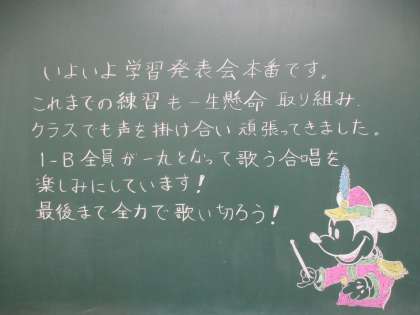 いよいよ学習発表会本番です。
これまでの練習も一生懸命取り組み、
クラスでも声を掛け合い頑張ってきました。
1-B全員が一丸となって歌う合唱を
楽しみにしています!
最後まで全力で歌い切ろう!